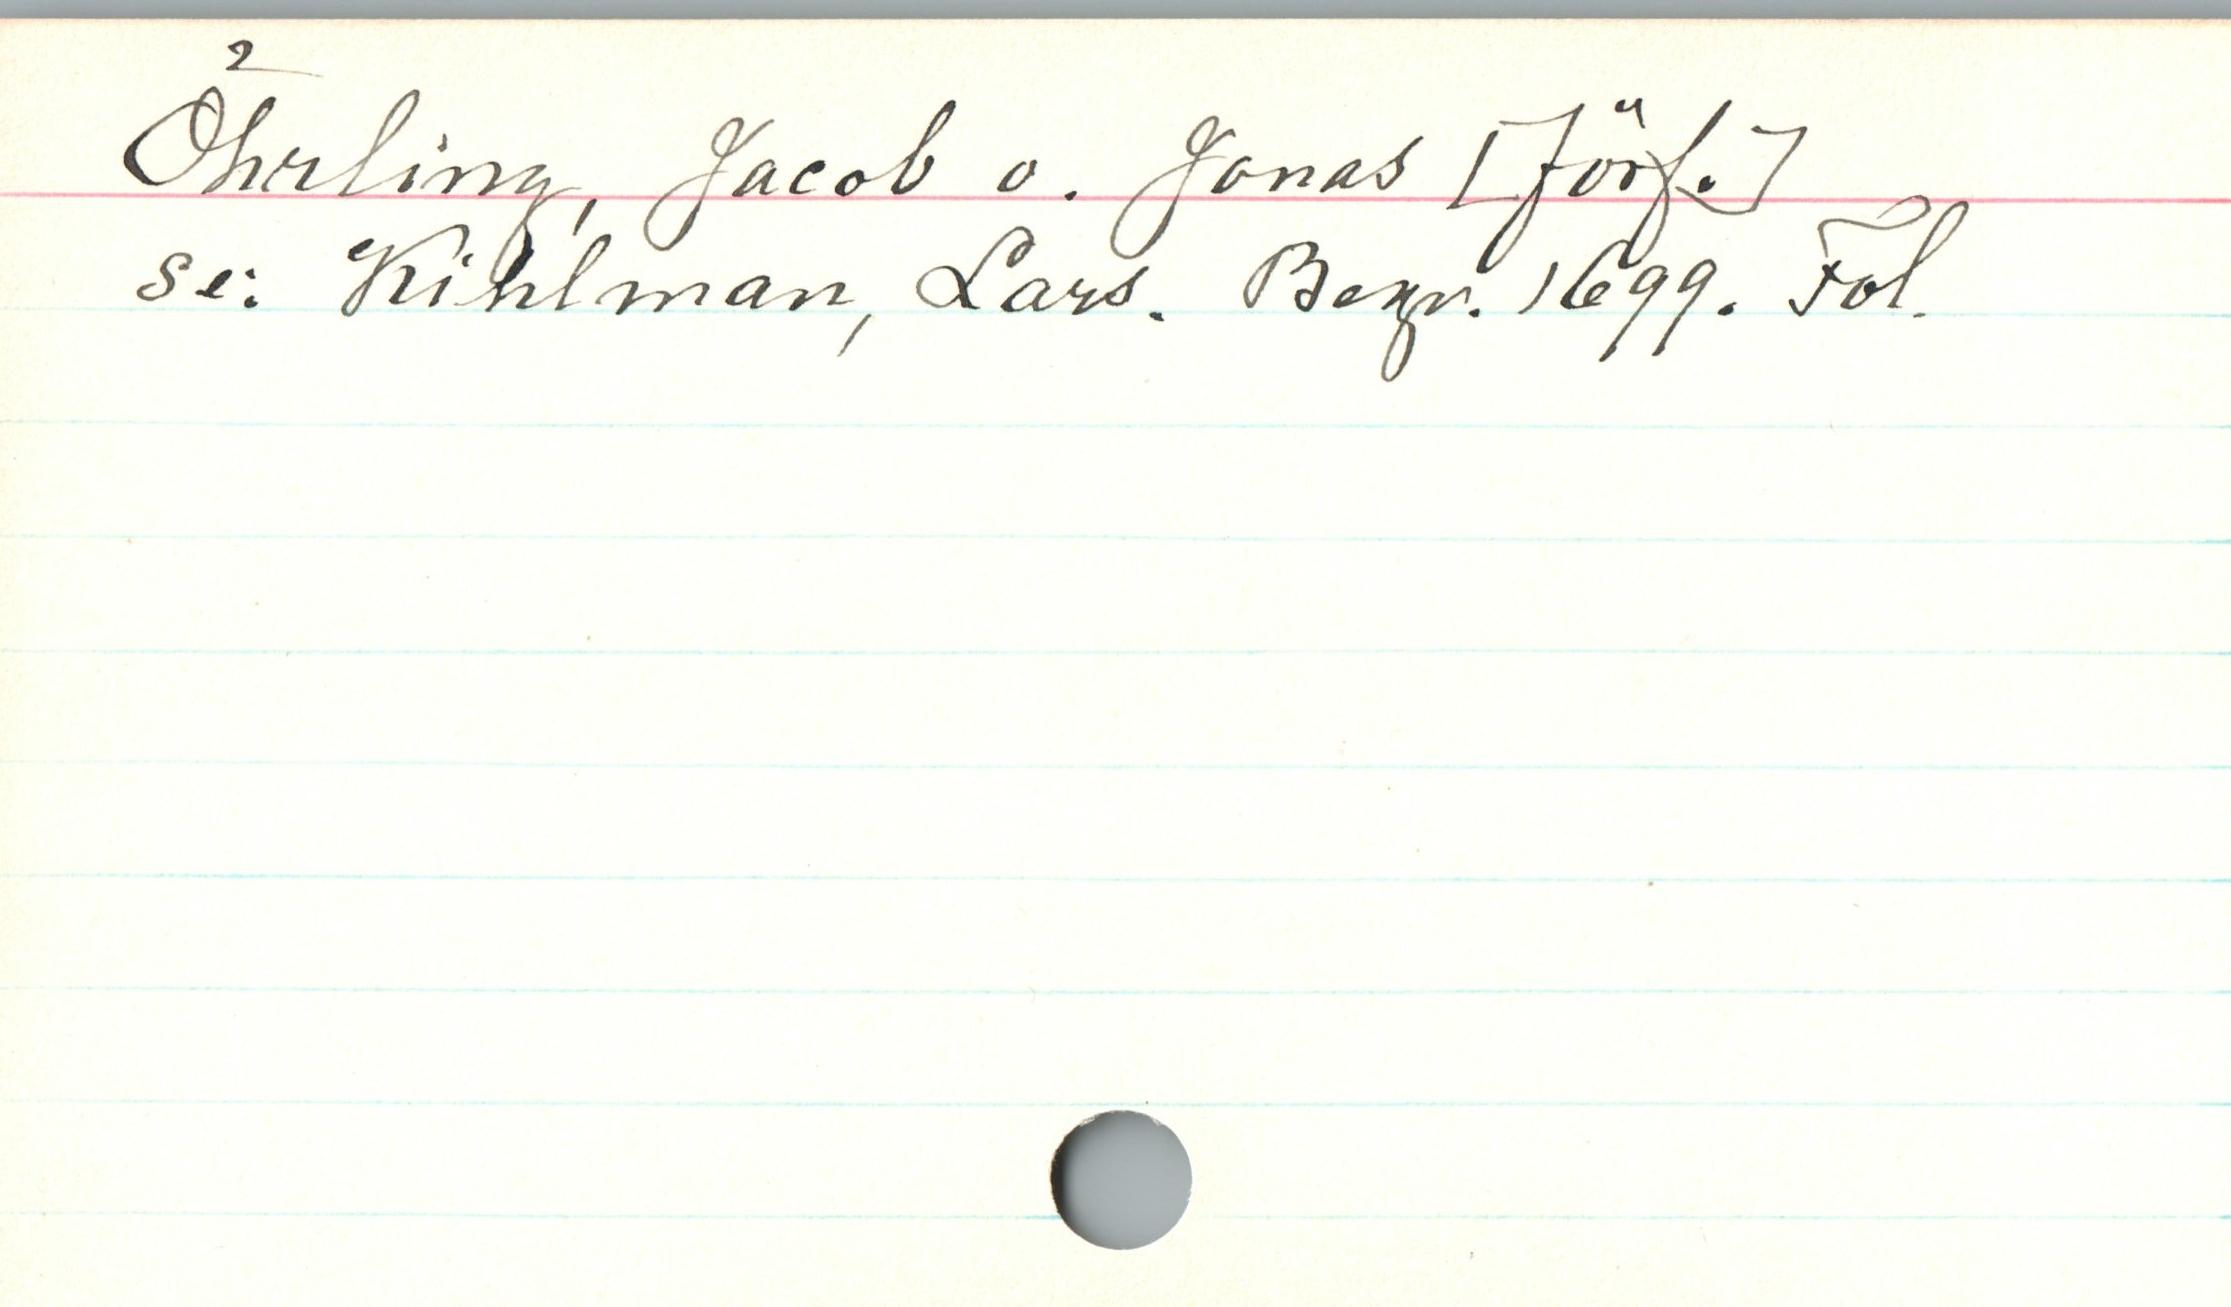 Öhrling, Jacob o. Jonas [förf.]
se: Kihlman, Lars. Begr. 1699. Fol.